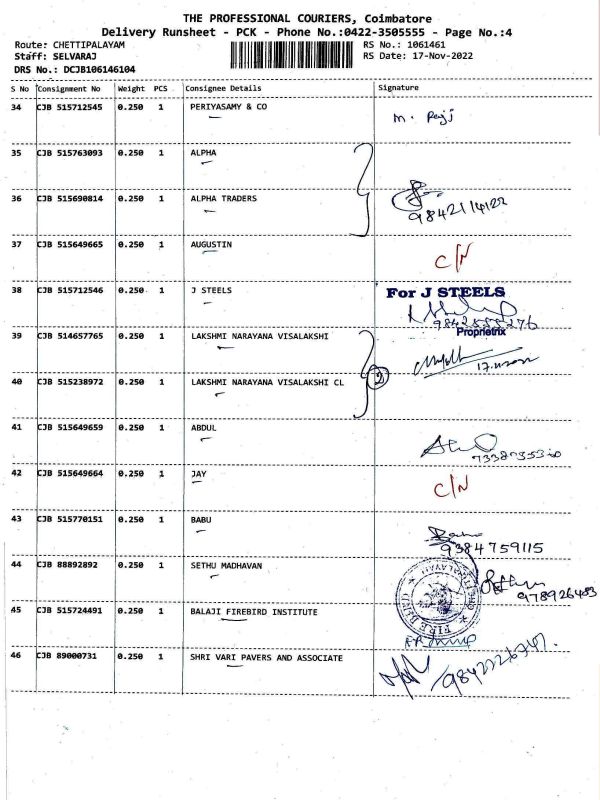 THE PROFESSIONAL COURIERS, Coimbatore
Delivery Runsheet - PCK - Phone No.:0422-3505555 - Page No.:4
Route: CHETTIPALAYAM RS No.: 1061461
Staff: SELVARAJ RS Date: 17-Nov-2022
DRS No.: DCJB106146104
S No Consignment No Weight PCS Consignee Details Signature
34 CJB 515712545 0.250 1 PERIYASAMY & CO
M.
35 CJB 515763093 0.250 1 ALPHA
36 CJB 515690814 0.250 1 ALPHA TRADERS
37 CJB 515649665 0.250 1 AUGUSTIN
C/N
38 CJB 515712546 0.250 1 J STEELS For J STEELS
Proprietrix
39 CJB 514657765 0.250 1 LAKSHMI NARAYANA VISALAKSHI
40 CJB 515238972 0.250 1 LAKSHMI NARAYANA VISALAKSHI CL 2
41 CJB 515649659 0.250 1 ABDUL
42 CJB 515649664 0.250 1 JAY
C/N
43 CJB 515770151 0.250 1 BABU
9384759115
44 CJB 88892892 0.250 1 SETHU MADHAVAN
45 CJB 515724491 0.250 1 BALAJI FIREBIRD INSTITUTE
46 CJB 89000731 0.250 1 SHRI VARI PAVERS AND ASSOCIATE